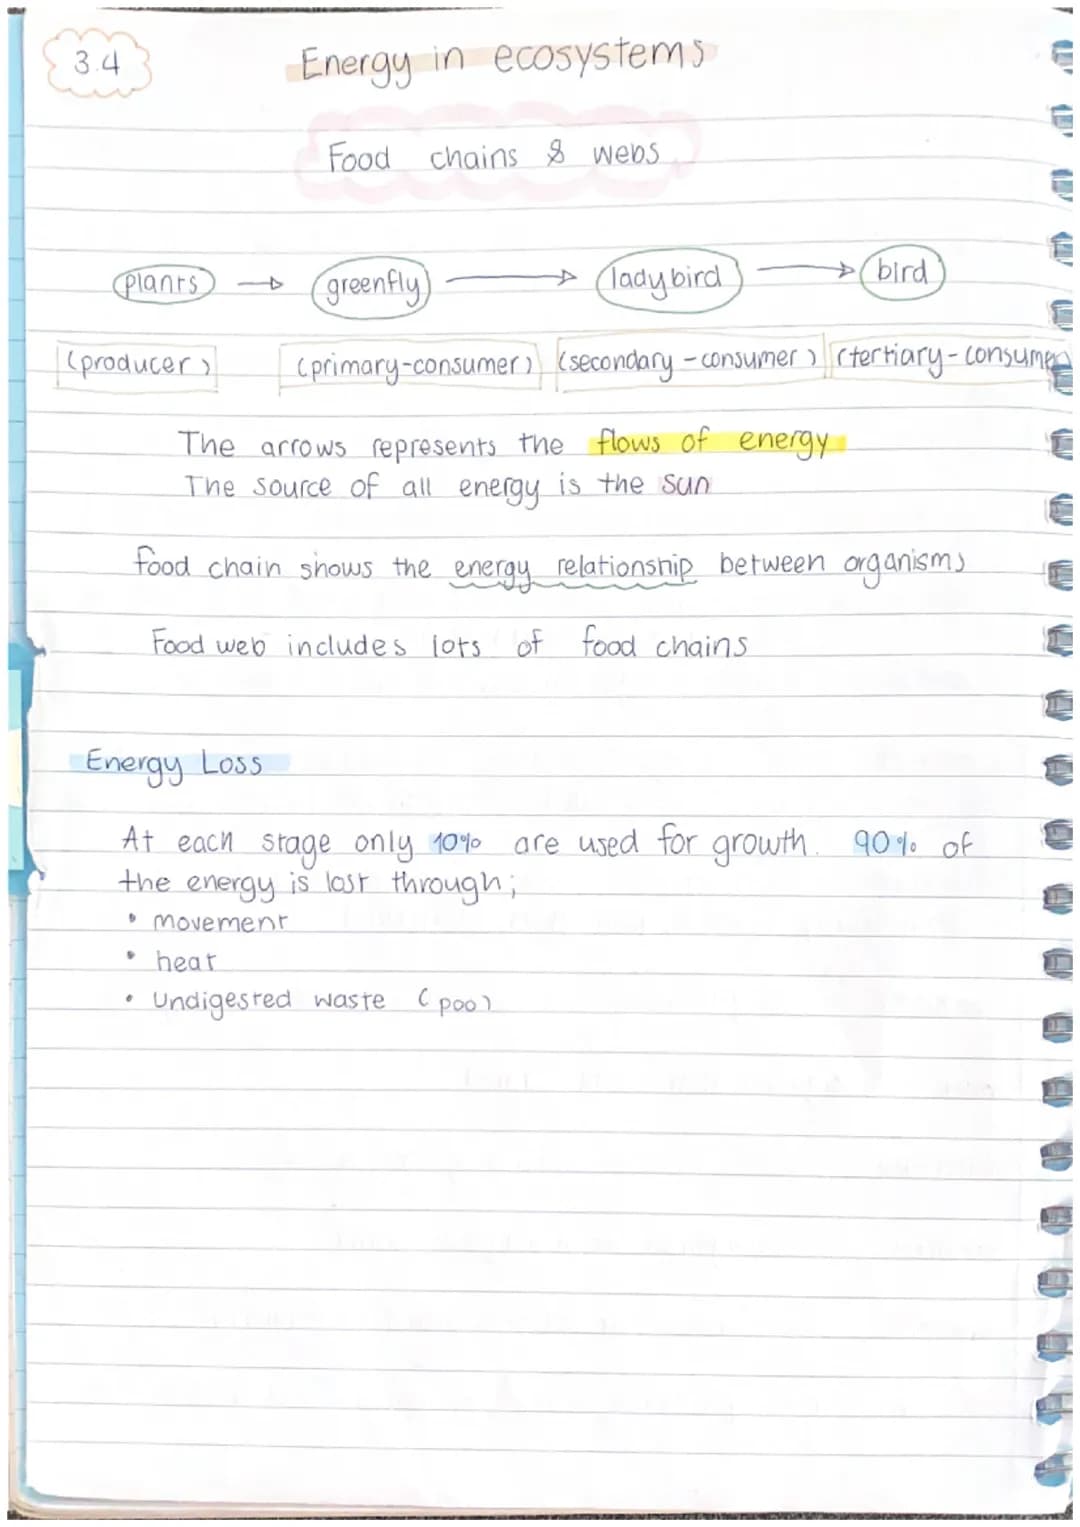 3.4
Energy in ecosystems
Food chains & webs
plants → greenfly → ladybird → bird
(producer) (primary-consumer) (secondary-consumer) (tertiary-consumer
The arrows represents the flows of energy
The source of all energy is the sun
food chain shows the energy relationship between organisms
Food web includes lots of food chains
Energy Loss
At each stage only 10% are used for growth. 90% of
the energy is lost through;
• movement
• heat
• Undigested waste (poo)